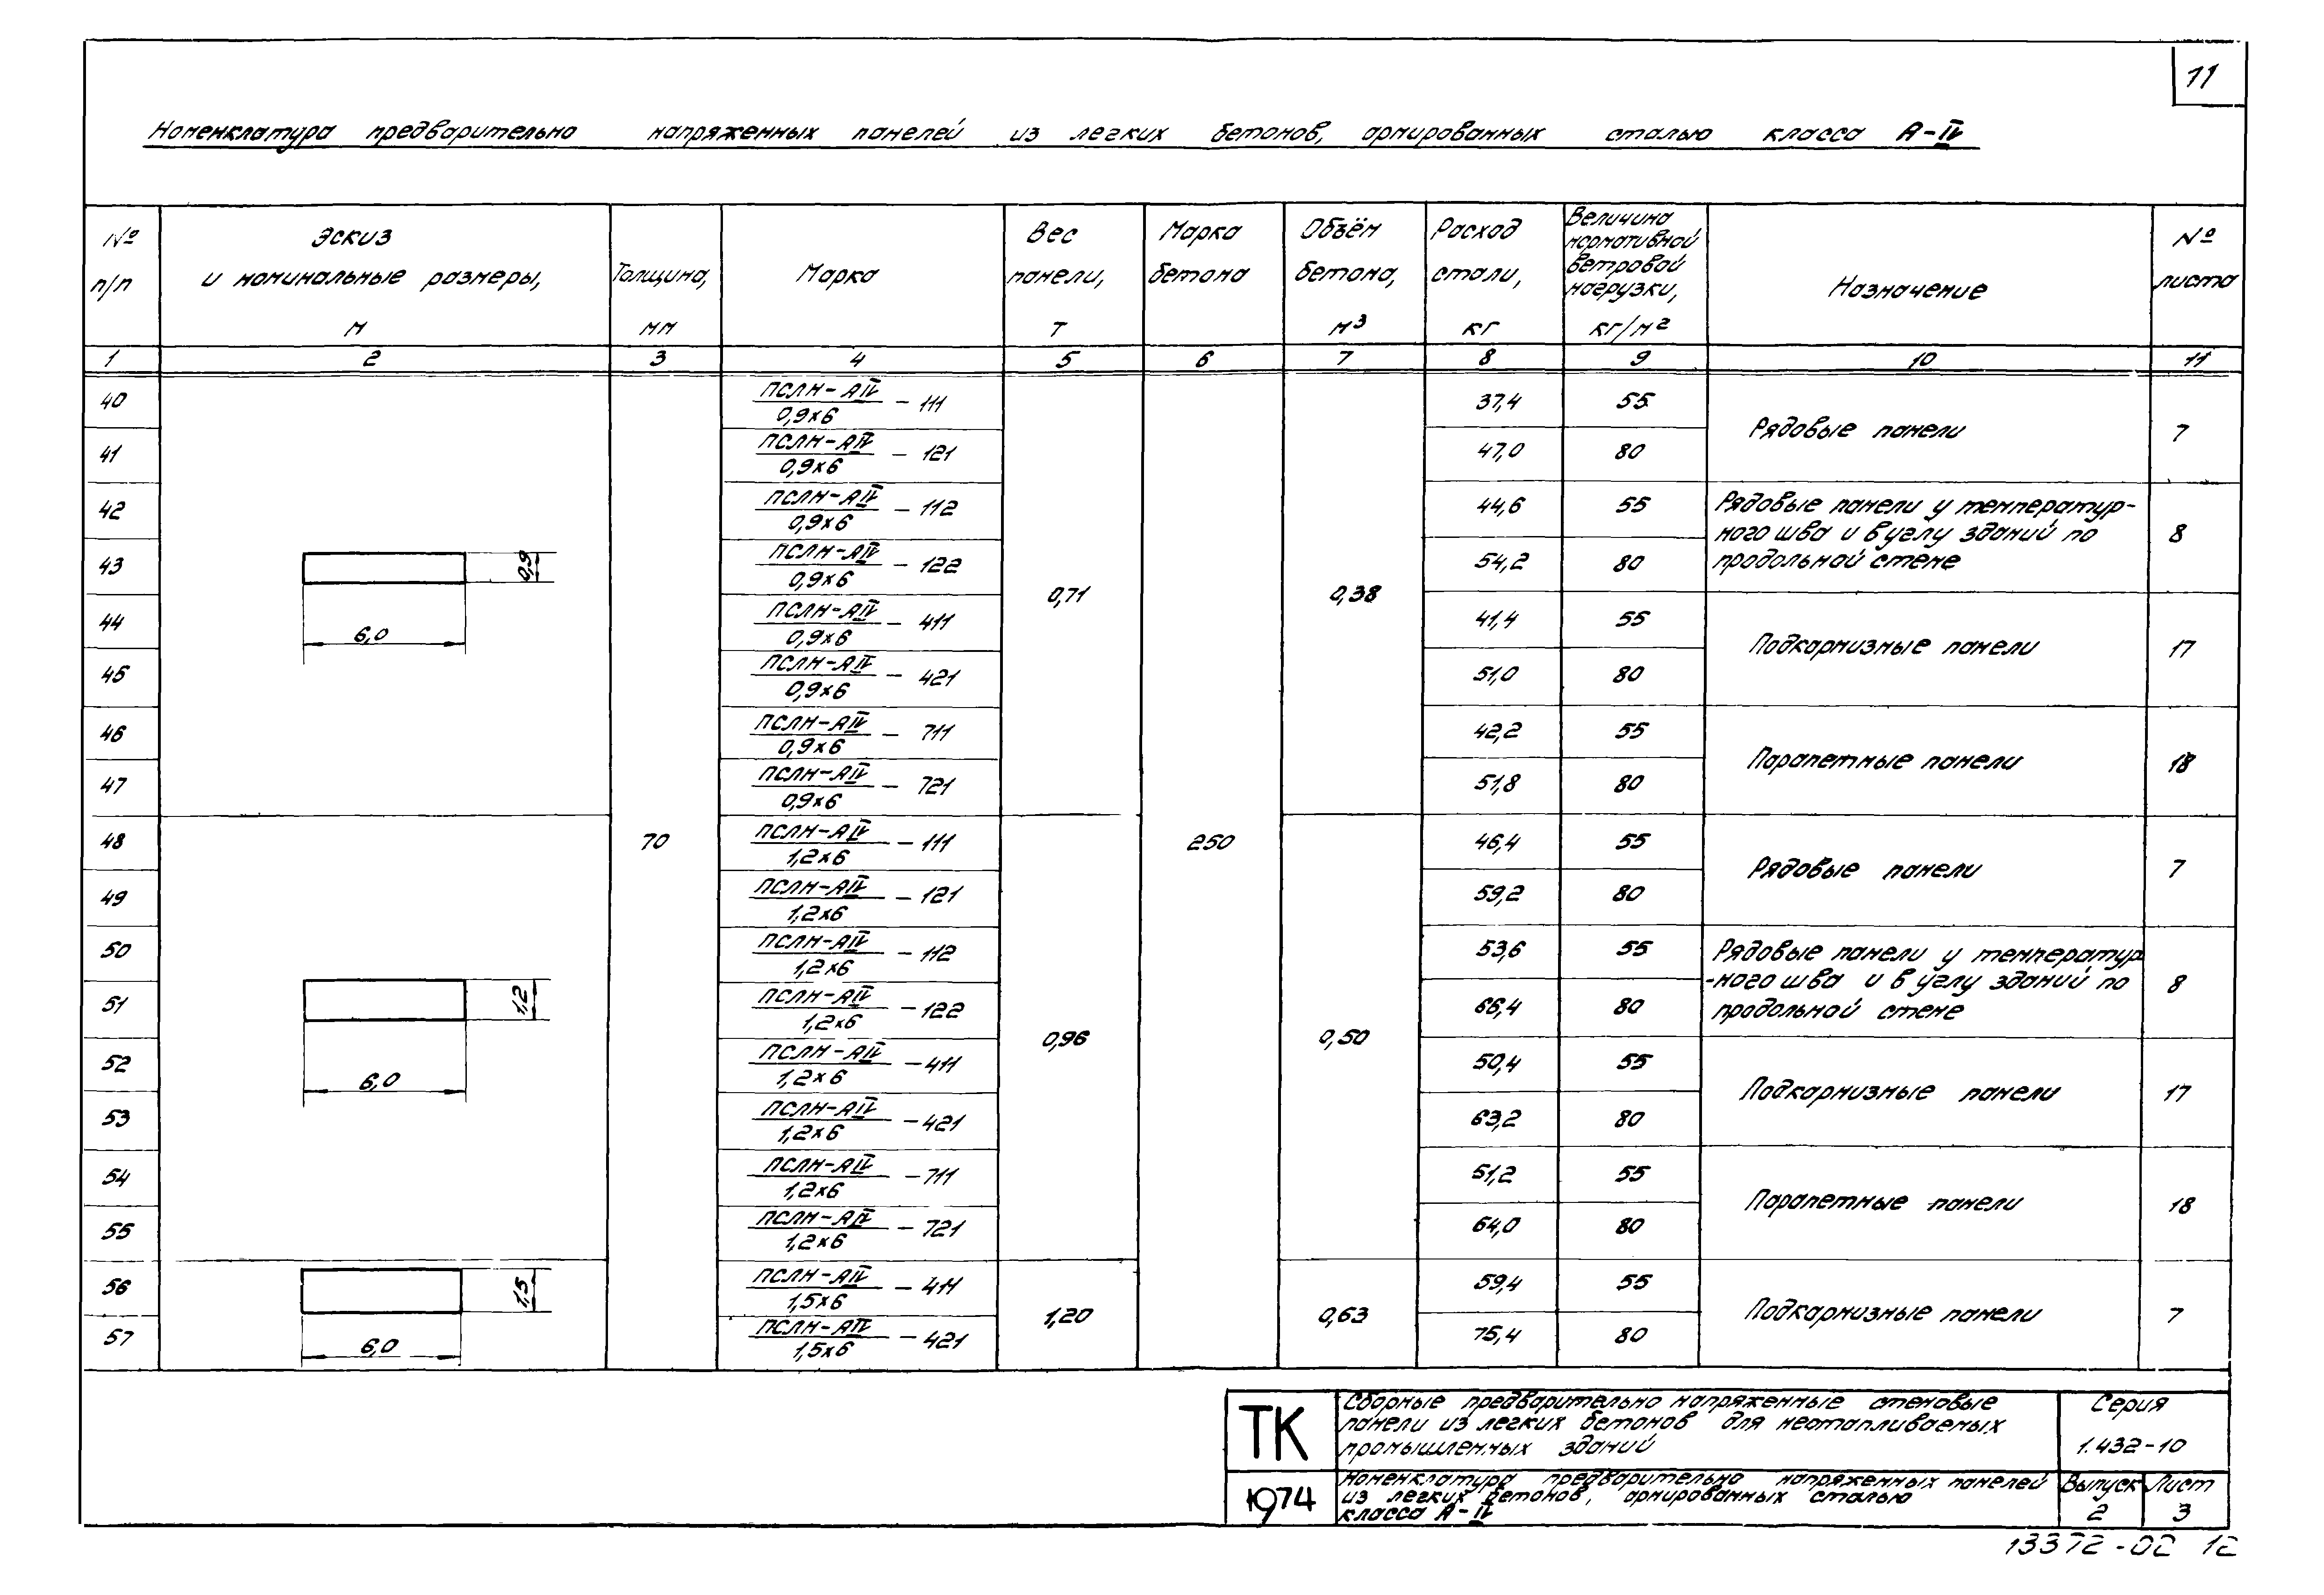 11
Номенклатура предварительно напряженных панелей из легких бетонов, армированных сталью класса А-IV
№ п/п
Эскиз и номинальные размеры, м
Толщина, мм
Марка
Вес панели, т
Марка бетона
Объём бетона, м³
Расход стали, кг
Величина нормативной ветровой нагрузки, кг/м²
Назначение
№ листа
1 2 3 4 5 6 7 8 9 10 11
40 ПСЛН-АIV/0,9х6 - 111 37,4 55 Рядовые панели 7
41 ПСЛН-АIV/0,9х6 - 121 47,0 80
42 ПСЛН-АIV/0,9х6 - 112 44,6 55 Рядовые панели у температур-
ного шва и в углу зданий по 8
продольной стене
43 0,9 ПСЛН-АIV/0,9х6 - 122 54,2 80
0,71 0,38
44 6,0 ПСЛН-АIV/0,9х6 - 411 41,4 55 Подкарнизные панели 17
45 ПСЛН-АIV/0,9х6 - 421 51,0 80
46 ПСЛН-АIV/0,9х6 - 711 42,2 55 Парапетные панели 18
47 ПСЛН-АIV/0,9х6 - 721 51,8 80
48 70 ПСЛН-АIV/1,2х6 - 111 250 46,4 55 Рядовые панели 7
49 ПСЛН-АIV/1,2х6 - 121 59,2 80
50 ПСЛН-АIV/1,2х6 - 112 53,6 55 Рядовые панели у температур
-ного шва и в углу зданий по 8
продольной стене
51 1,2 ПСЛН-АIV/1,2х6 - 122 66,4 80
0,96 0,50
52 6,0 ПСЛН-АIV/1,2х6 - 411 50,4 55 Подкарнизные панели 17
53 ПСЛН-АIV/1,2х6 - 421 63,2 80
54 ПСЛН-АIV/1,2х6 - 711 51,2 55 Парапетные панели 18
55 ПСЛН-АIV/1,2х6 - 721 64,0 80
56 1,5 ПСЛН-АIV/1,5х6 - 411 59,4 55 Подкарнизные панели 7
1,20 0,63
57 6,0 ПСЛН-АIV/1,5х6 - 421 75,4 80
ТК
Сборные предварительно напряженные стеновые
панели из легких бетонов для неотапливаемых
промышленных зданий
Серия
1.432-10
1974
Номенклатура предварительно напряженных панелей
из легких бетонов, армированных сталью
класса А-IV
Выпуск 2
Лист 3
13372-02 12